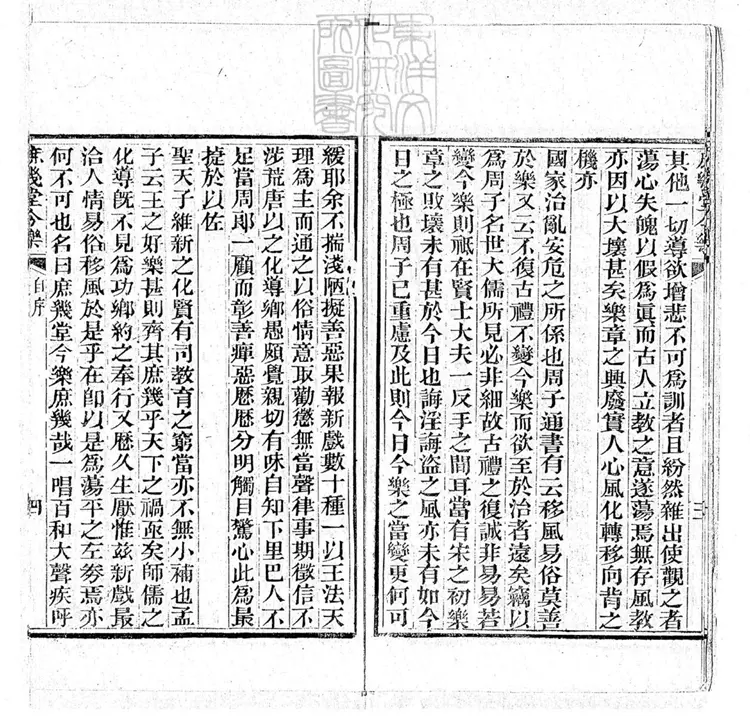 東洋文
化研究
所圖書
庶幾堂今樂
其他一切導欲增悲不可爲訓者且紛然雜出使觀之者
蕩心失魄以假爲眞而古人立教之意遂蕩焉無存風教
亦因以大壞甚矣樂章之興廢實人心風化轉移向背之
機亦
國家治亂安危之所係也周子通書有云移風易俗莫善
於樂又云不復古禮不變今樂而欲至於治者遠矣竊以
爲周子名世大儒所見必非細故古禮之復誠非易易若
變今樂則祇在賢士大夫一反手之間耳當有宋之初樂
章之敗壞未有甚於今日也誨淫誨盜之風亦未有如今
日之極也周子已重慮及此則今日今樂之當變更何可
三
緩耶余不揣淺陋擬善惡果報新戲數十種一以王法天
理爲主而通之以俗情意取勸懲無當聲律事期徵信不
涉荒唐以之化導鄉愚頗覺親切有味自知下里巴人不
足當周郞一顧而彰善癉惡歷歷分明觸目驚心此爲最
捷於以佐
聖天子維新之化賢有司教育之窮當亦不無小補也孟
子云王之好樂甚則齊其庶幾乎天下之禍亟矣師儒之
化導旣不見爲功鄉約之奉行又歷久生厭惟茲新戲最
洽人情易俗移風於是乎在卽以是爲蕩平之左劵焉亦
何不可也名曰庶幾堂今樂庶幾哉一唱百和大聲疾呼
庶幾堂今樂
自序
四